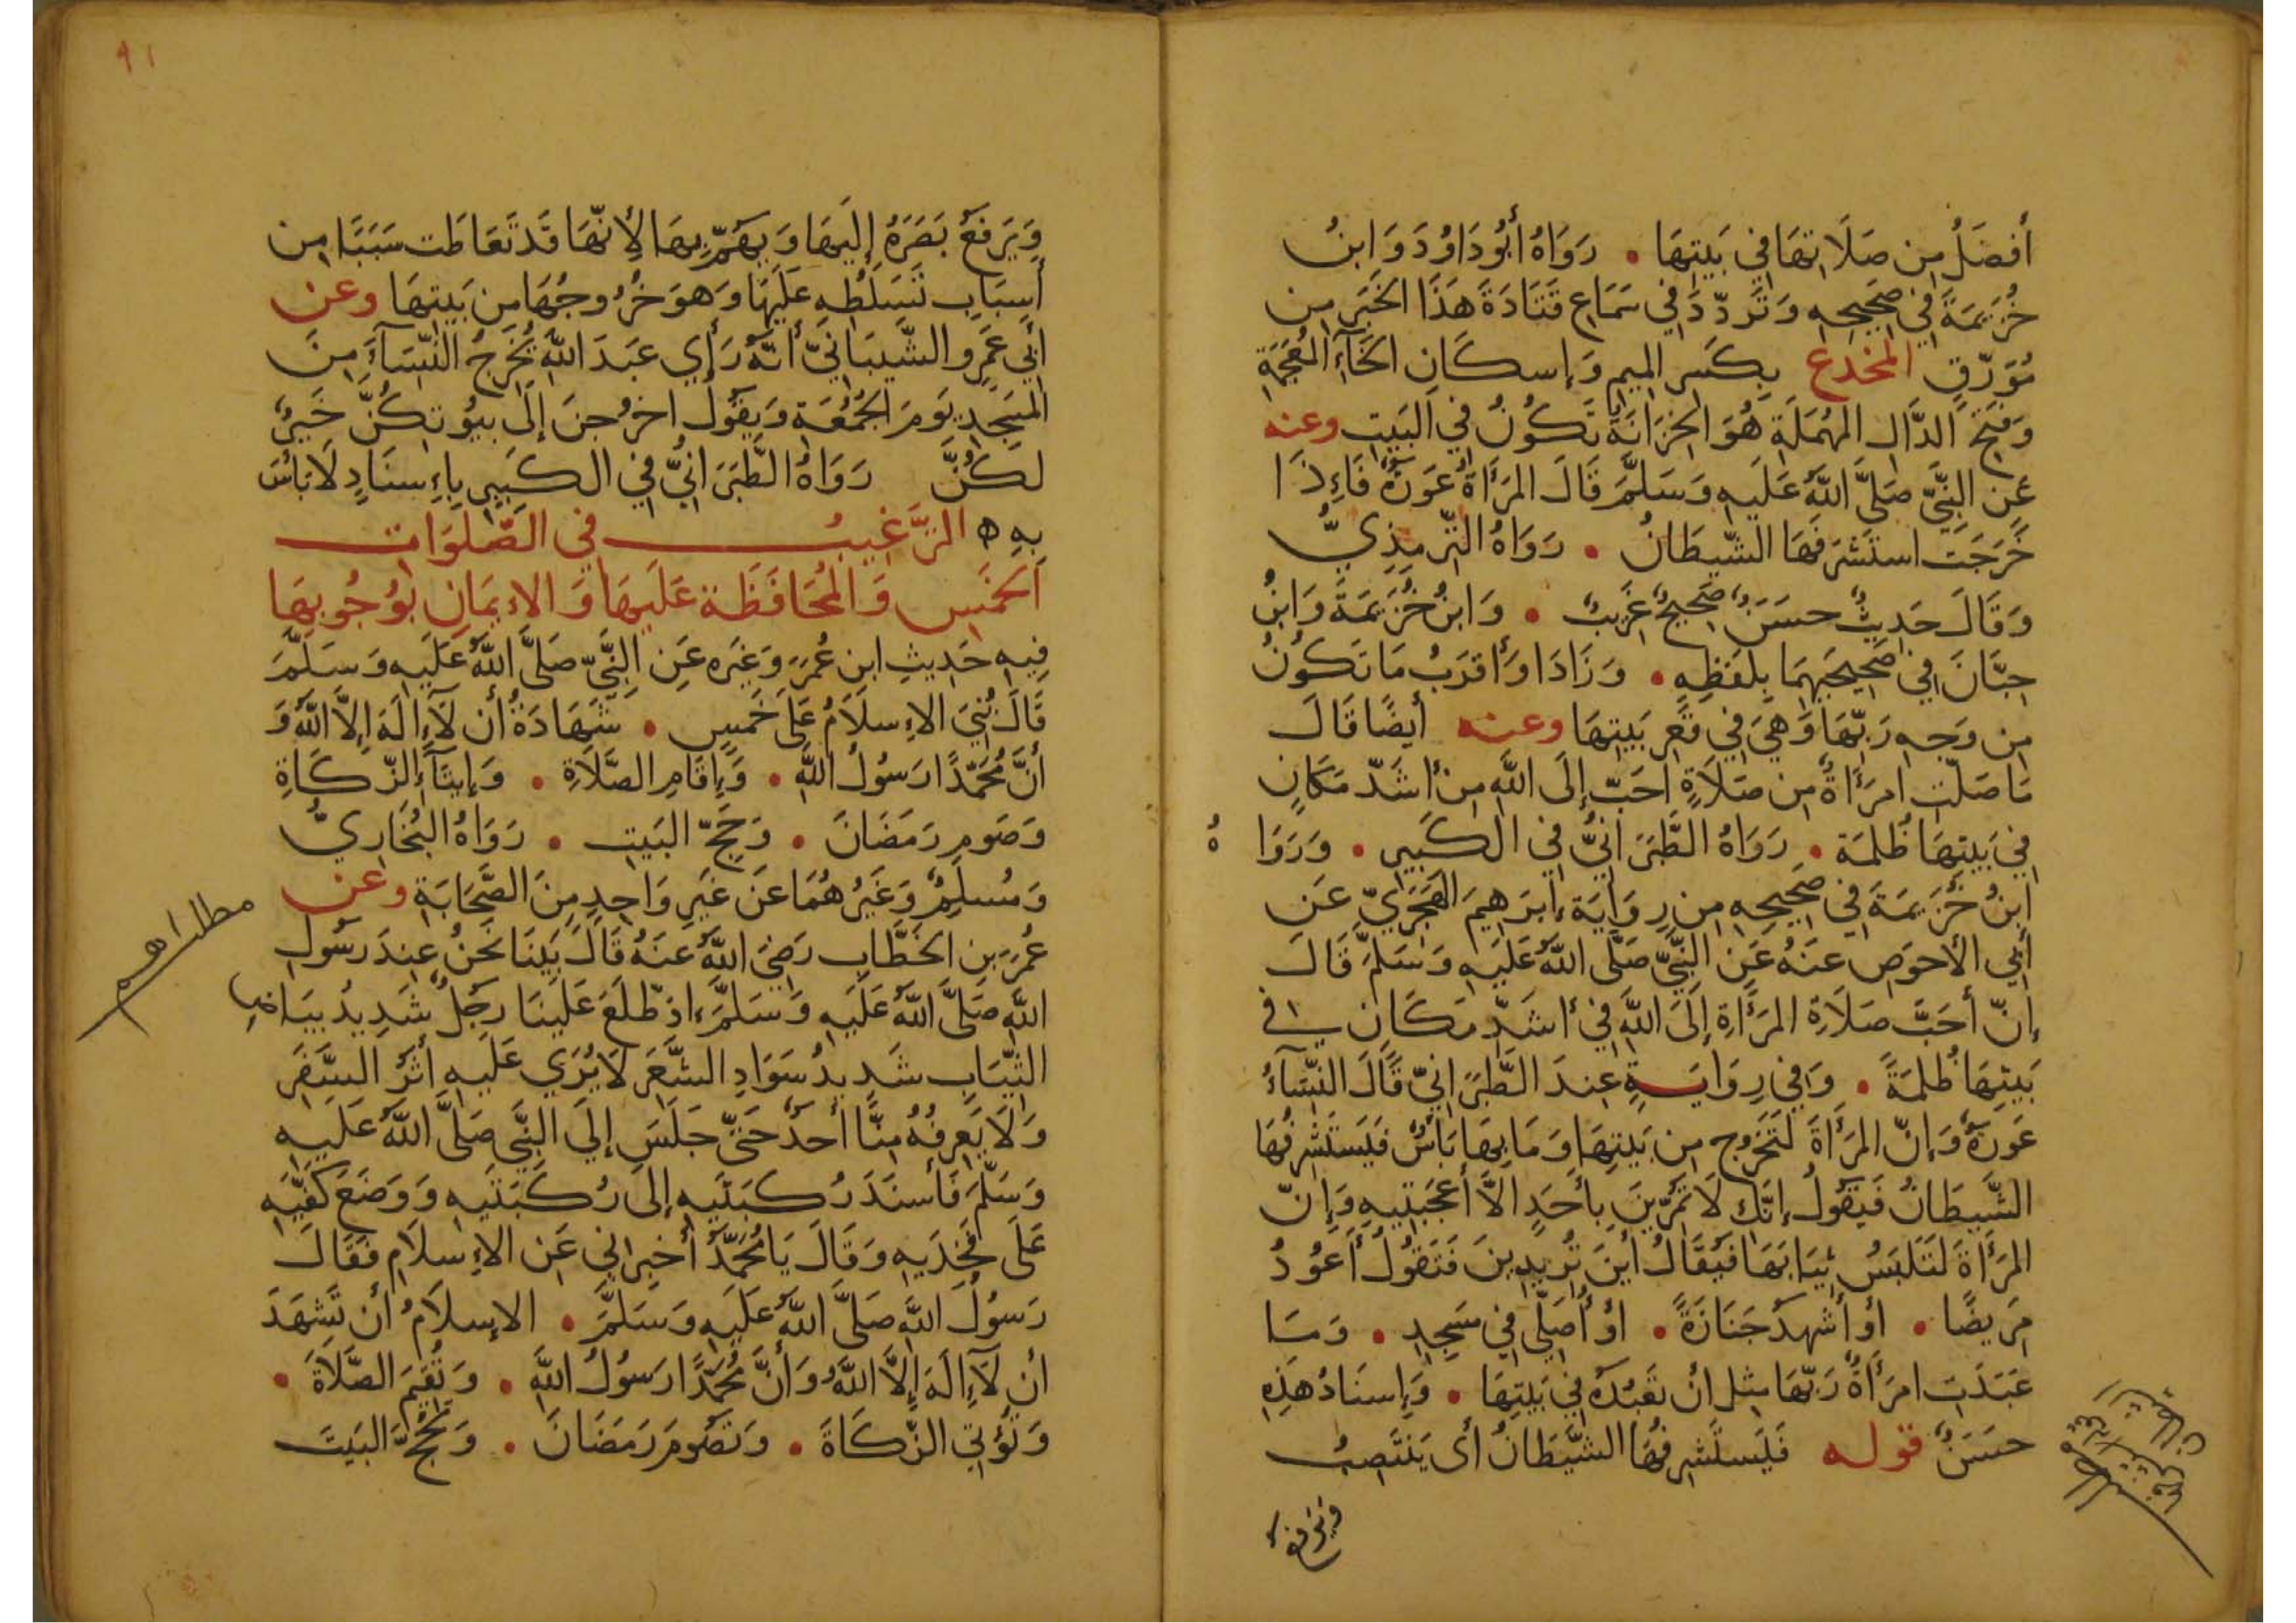 أفضَلُ مِن صَلَاتهَا فِي بَيتِهَا • رَوَاهُ أبُودَاوُدَ وَابنُ
خُزَيمَةَ فِي صَحِيحِهِ وَتَردّدَ فِي سَمَاعِ قَتَادَةَ هَذَا الخَبَرِ مِن
مُوَرّقٍ المخدع بِكَسرِ المِيمِ وَإسكَانِ الخَآءِ المُعجَمَةِ
وَفَتحِ الدَّالِ المُهمَلَةِ هُوَ الخِزَانَةُ تَكُونُ فِي البَيتِ وعنه
عَن النَّبِيّ صَلَّى اللَّهُ عَلَيهِ وَسَلَّمَ قَالَ المَرأَةُ عَورَةٌ فَإِذَا
خَرَجَت استَشرَفَهَا الشَّيطَانُ • رَوَاهُ التّرمِذِيُّ
وَقَالَ حَدِيثٌ حسَنٌ صَحِيحٌ غَرِيبٌ • وَابنُ خُزَيمَةَ وَابنُ
حِبَّانَ فِي صَحِيحَيهِمَا بِلَفظِهِ • وَزَادَا وَأقرَبُ مَا تَكُونُ
مِن وَجهِ رَبّهَا وَهِيَ فِي قَعرِ بَيتِهَا وعنه أيضًا قَالَ
مَا صَلّت امرَأةٌ مِن صَلَاةٍ أحَبّ إلَى اللَّهِ مِن أشَدّ مَكَانٍ
فِي بَيتِهَا ظُلمَة • رَوَاهُ الطَّبَرَانِيُّ فِي الكَبِيرِ • وَرَوَاهُ
ابنُ خُزَيمَةَ فِي صَحِيحِهِ مِن رِوَايَةِ إبرَاهِيمَ الهَجَرِيّ عَن
أبِي الأحوَصِ عَنهُ عَنِ النَّبِيّ صَلَّى اللَّهُ عَلَيهِ وَسَلَّمَ قَالَ
إنّ أحَبَّ صَلَاةِ المَرأَةِ إلَى اللَّهِ فِي أشَدّ مَكَانٍ في
بَيتِهَا ظُلمَةً • وَفِي رِوَايَةٍ عِندَ الطَّبَرَانِيّ قَالَ النّسَآءُ
عَورَةٌ وَإنّ المَرأَةَ لَتَخرُج مِن بَيتِهَا وَمَا بِهَا بَأسٌ فَيَستَشرِفُهَا
الشَّيطَانُ فَيَقُولُ إنّكِ لَا تَمُرّينَ بِأحَدٍ الَّا أعجَبتِيهِ وَإنّ
المَرأَةَ لَتَلبَسُ ثِيَابَهَا فَيُقَالُ أينَ تُرِيدِينَ فَتَقُولُ أعُودُ
مَرِيضًا • أو أشهدُ جَنَازَةً • أو أُصَلّي فِي مَسجِدٍ • وَمَا
عَبَدَت امرَأَةٌ رَبّهَا مِثل أن تَعبُدَهُ فِي بَيتِهَا • وَإسنَادُ هَذِهِ
حسَنٌ قوله فَيَستَشرِفُهَا الشَّيطَانُ أي يَنتَصِبُ
ويرفع
٩١
وَيَرفَعُ بَصَرَهُ إلَيهَا وَيَهُمّ بِهَا لِأنّهَا قَد تَعَاطَت سَبَبًا مِن
أسبَابِ تَسَلّطِهِ عَلَيهَا وَهوَ خُرُوجُهَا مِن بَيتِهَا وعن
أبِي عَمرٍو الشَّيبَانِيّ أنّهُ رَأي عَبدَ اللَّهِ يُخرِجُ النّسَآءَ مِنَ
المَسجِدِ يَومَ الجُمُعَةِ وَيَقُولُ اخرُجنَ إلَى بيُوتِكُنَّ خَيرٌ
لكُنَّ رَوَاهُ الطَّبَرَانِيُّ فِي الكَبِيرِ بِإِسنَادٍ لَا بَأسَ
بِهِ ه التَّرغِيبُ فِي الصَّلَوَات
الخَمسِ وَالمُحَافَظَة عَلَيهَا وَالإيمَانِ بوُجُوبِهَا
فِيهِ حَدِيثِ ابنِ عُمَرَ وَغَيرِه عَنِ النَّبِيّ صَلَّى اللَّهُ عَلَيهِ وَسَلَّمَ
قَالَ بُنِيَ الإِسلَامُ عَلَى خَمسٍ • شَهَادَةُ أن لَآ إلَهَ إلَّا اللَّهُ وَ
أنَّ مُحَمّدًا رَسُولُ اللَّهِ • وَإقَامِ الصَّلَاةِ • وَإيتَآءِ الزّكَاةِ
وَصَومِ رَمَضَانَ • وَحَجّ البَيتِ • رَوَاهُ البُخَارِيُّ
وَمُسلِمٌ وَغَيرُهُمَا عَن غَيرِ وَاحِدٍ مِنَ الصَّحَابَةِ وعن
عُمَرَ بنِ الخَطَّابِ رَضِيَ اللَّهُ عَنهُ قَالَ بَينَا نَحنُ عِندَ رَسُولِ
اللَّهِ صَلَّى اللَّهُ عَلَيهِ وَسَلَّمَ إذ طَلَعَ عَلَينَا رَجُلٌ شَدِيدُ بَيَاضِ
الثّيَابِ شَدِيدُ سَوَادِ الشَّعَرِ لَا يُرَي عَلَيهِ أثَرُ السَّفَرِ
وَلَا يَعرِفُهُ مِنَّا أحَدٌ حَتّي جَلَسَ إلَى النَّبِيّ صَلَّى اللَّهُ عَلَيهِ
وَسَلَّمَ فَأسنَدَ رُكبَتَيهِ إلَى رُكبَتَيهِ وَوَضَعَ كَفّيهِ
عَلَى فَخِذَيهِ وَقَالَ يَا مُحَمّدُ أخبِرانِي عَنِ الإِسلَامِ فَقَالَ
رَسُولُ اللَّهِ صَلَّى اللَّهُ عَلَيهِ وَسَلَّمَ • الإسلَامُ أن تَشهَدَ
أن لَآ إلَهَ إلَّا اللَّهُ وَأنَّ مُحَمّدًا رَسُولُ اللَّهِ • وَتُقِيمَ الصَّلَاةَ •
وَتُؤتِيَ الزّكَاةَ • وَتَصُومَ رَمَضَانَ • وَتَحُجَّ البَيتَ